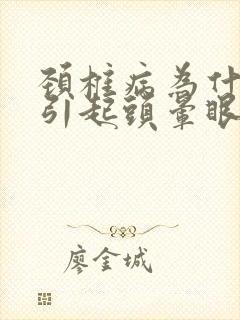 頚椎病為什
引起頭暈眼
廖金城